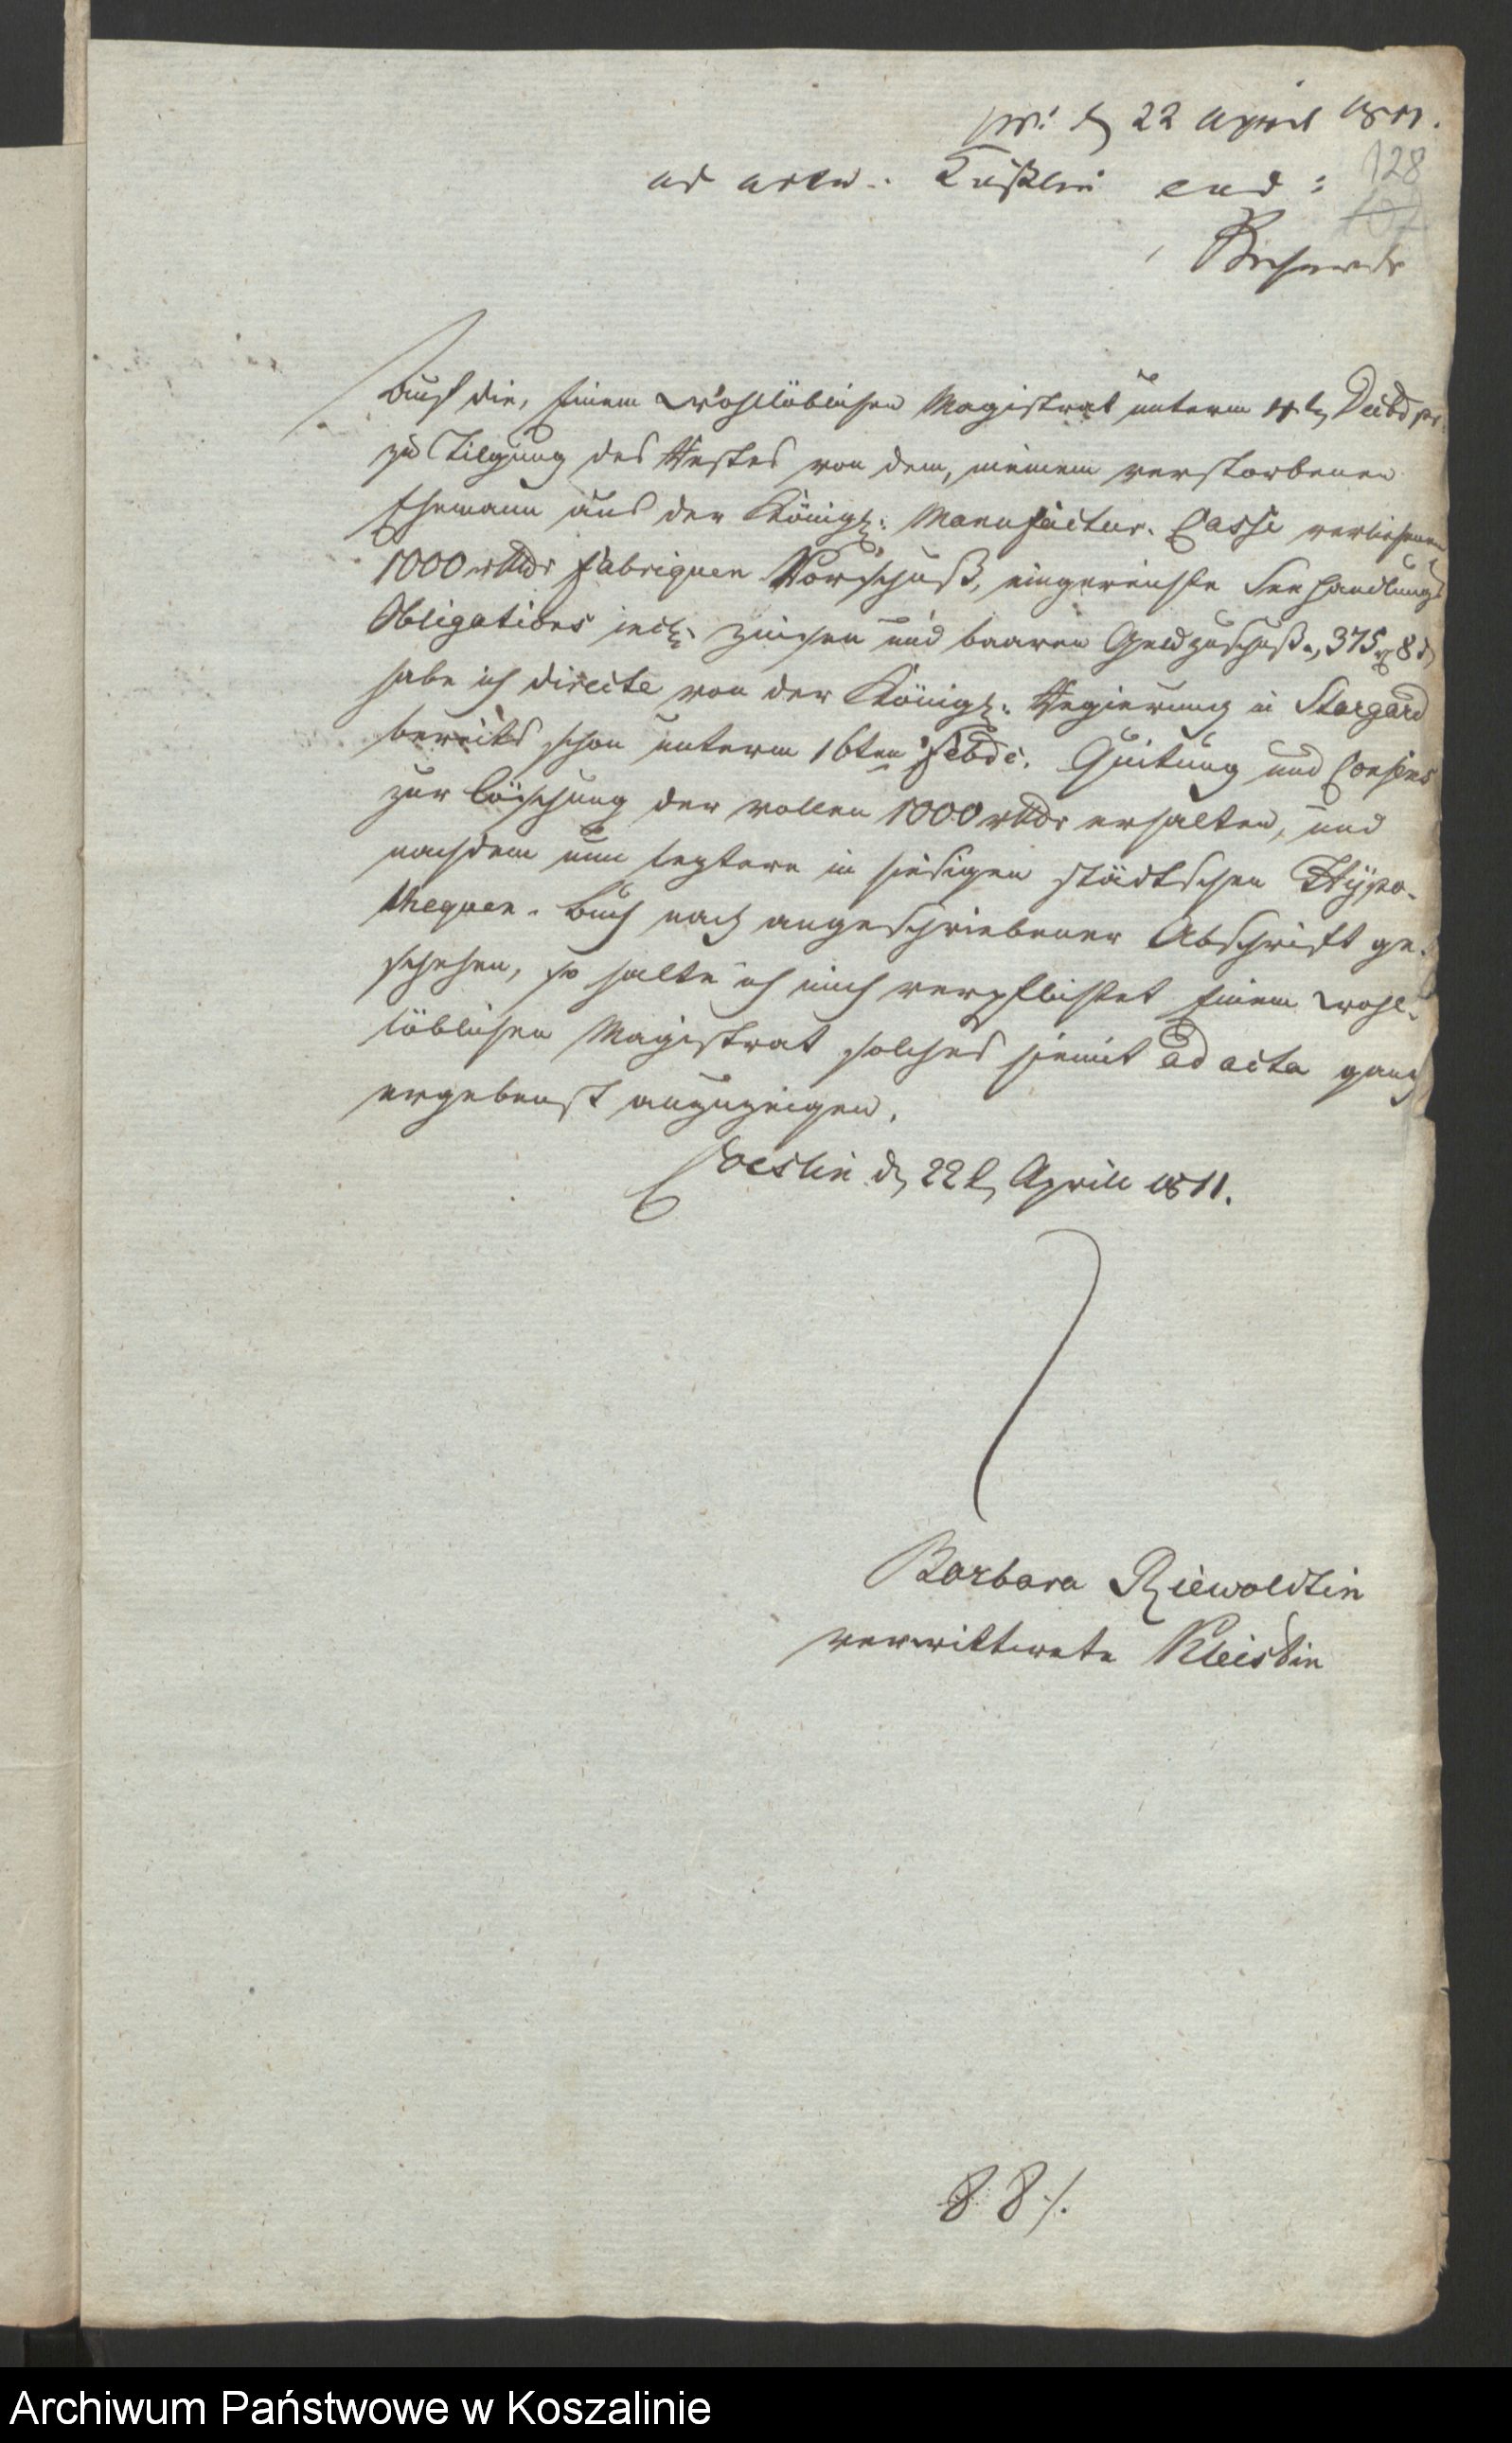 pr: d 22 April 1811.
128
107
ad acta.
Auf die, Einem Wohllöblichen Magistrat unterm Decbr pr.
zu Tilgung des Restes von dem, meinem verstorbenen
Ehemann aus der Königl: Manufactur-Casse verliehenen
1000 rthlr Fabriquen Vorschuß, eingereichte Seehandlungs
Obligations incl: Zinsen und baaren Geldzuschuß, 375 8
habe ich directe von der Königl: Regierung in Stargard
bereits schon unterm 16ten Quitung und Consens
zur Löschung der vollen 1000 rthlr erhalten, und
nachdem nun letztere in hiesigen städtschen Hÿpo-
thequen-Buch nach angeschriebener Abschrift ge-
schehen, so halte ich mich verpflichtet Einem Wohl-
löblichen Magistrat solches hiemit ad acta ganz
ergebenst anzuzeigen.
Coeslin d 22t Aprill 1811.
Barbara Riewoldtin
verwittwete Kleistin
88/.
Archiwum Państwowe w Koszalinie